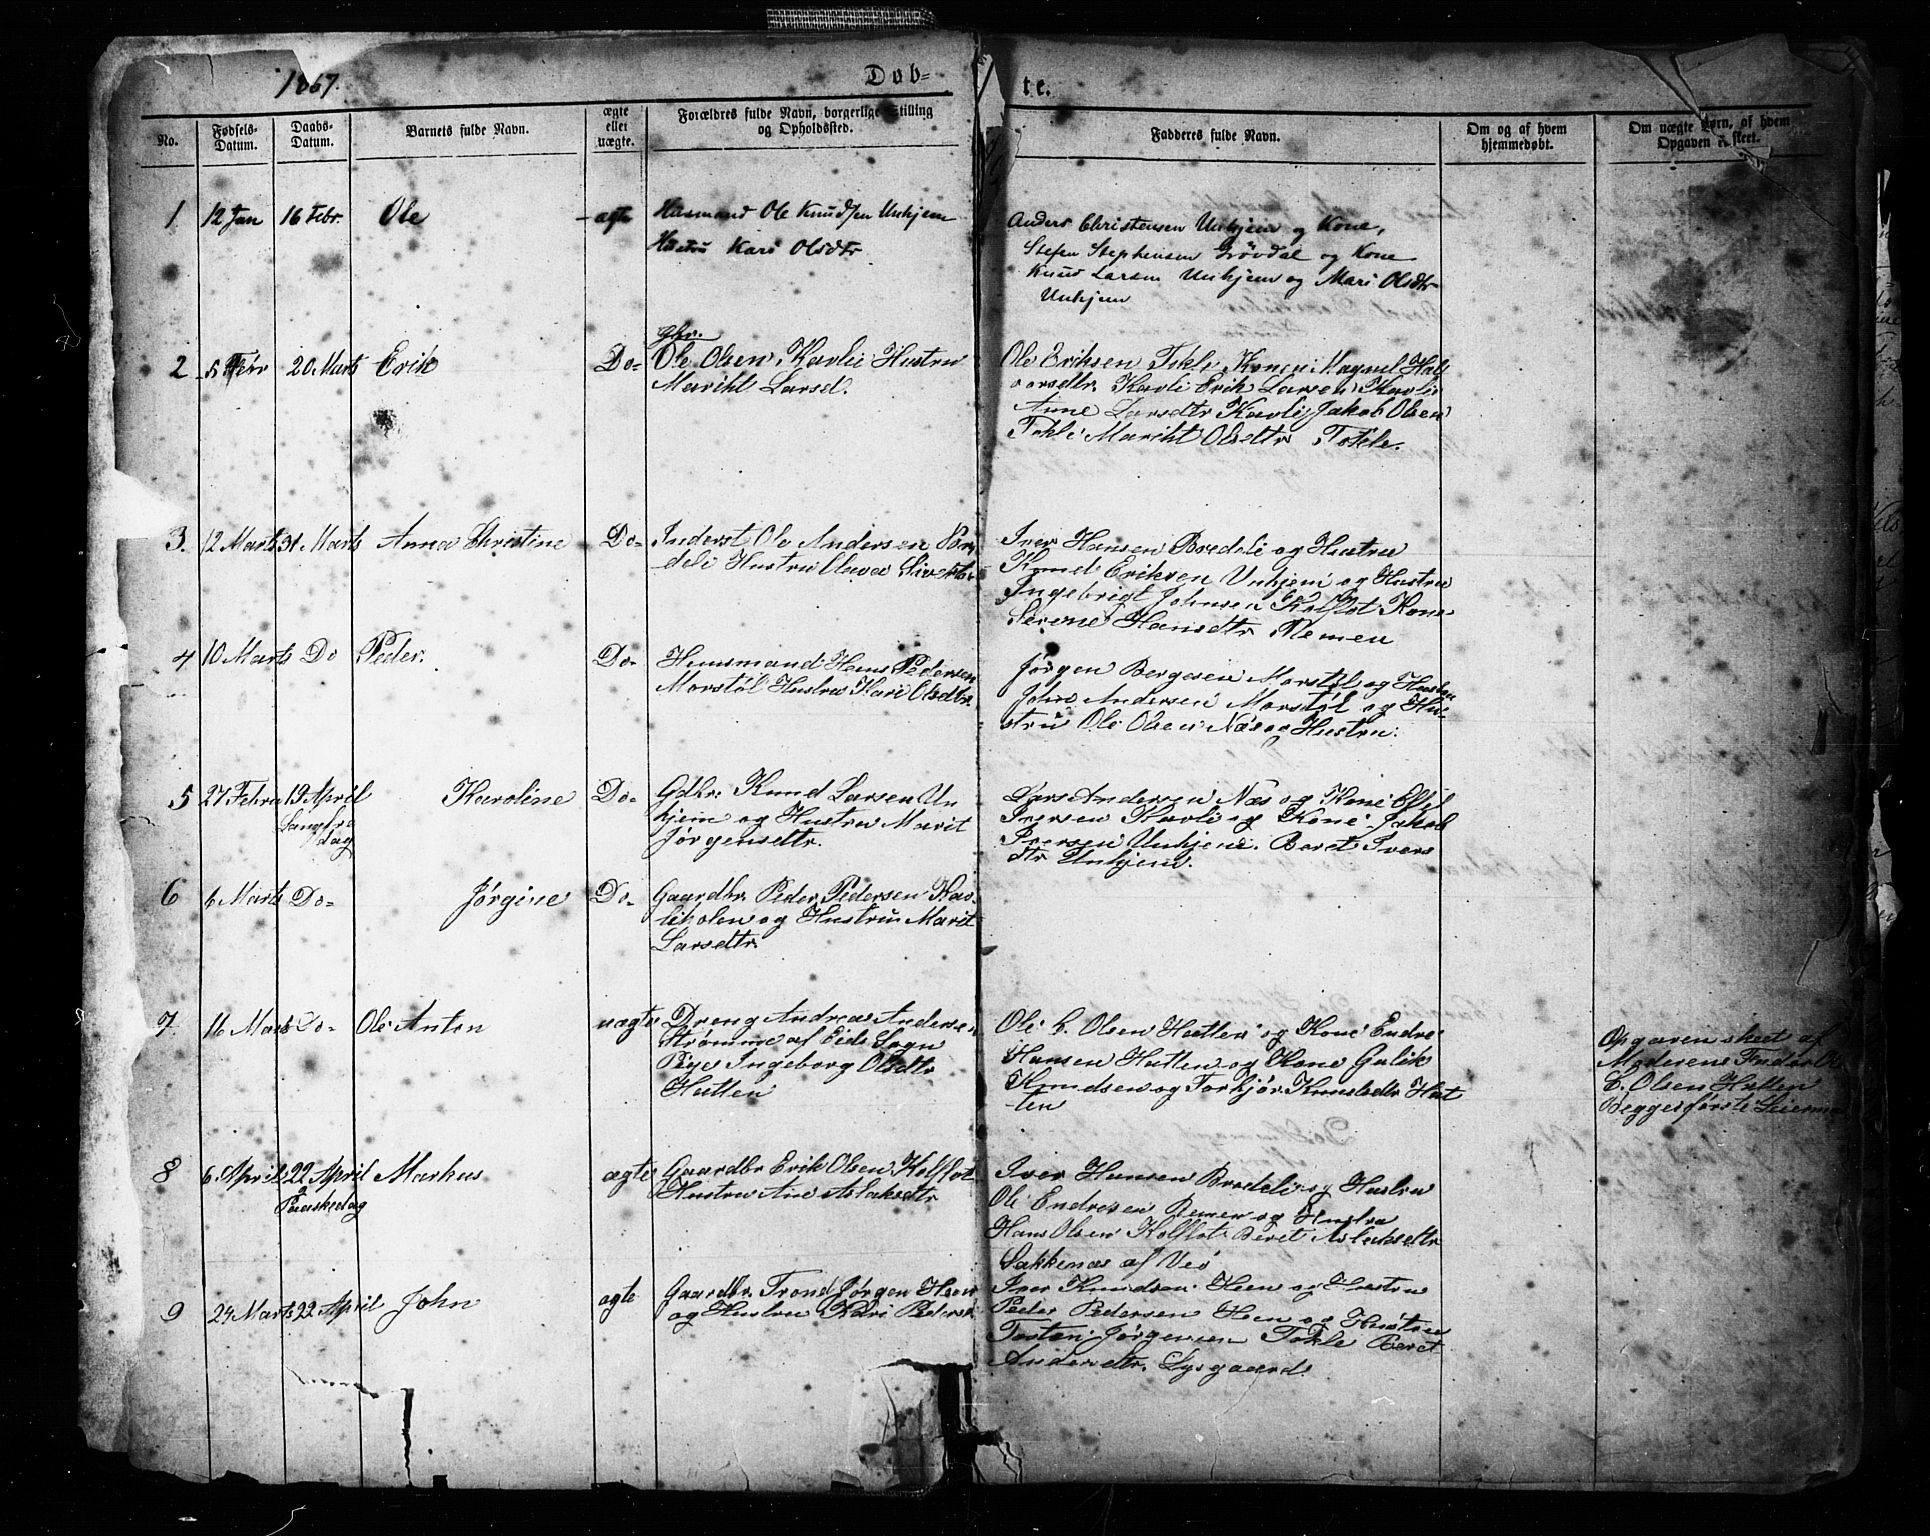 1867.
Døb-
te.
No.
Fødsels-
Datum.
Daabs-
Datum.
Barnets fulde Navn.
ægte
eller
uægte.
Forældres fulde Navn, borgerlige Stilling
og Opholdsted.
Fadderes fulde Navn.
Om og af hvem
hjemmedøbt.
Om uægte Børn, af hvem
Opgaven er skeet.
1 12 Jan 16 Febr. Ole ægte
Husmand Ole Knudsen Unhjem
Hustru Kari Olsdtr
Anders Christensen Unhjem og Kone,
Stefen Stephensen Grövdal og Kone
Knud Larsen Unhjem og Mari Olsdtr
Unhjem
2 5 Febr 20 Marts Erik Do-
gbr.
Ole Olsen Kavli Hustru
Mariht Larsd.
Ole Eriksen Tokle Kone Magnil Hal
vorsdtr. Kavli Erik Larsen Kavli
Anne Larsdtr Kavli Jakob Olsen
Tokle Mariht Olsdtr Tokle.
3. 12 Marts 31 Marts Anna Christine Do-
Inderst Ole Andersen Bre
deli Hustru Olava Sivertsd
Iver Hansen Bredeli og Hustru
Knud Eriksen Unhjem og Hustru
Ingebrigt Johnsen Kolflot Kone
Serene Hansdtr Remen
4 10 Marts Do Peder. Do-
Huusmand Hans Pedersen
Morstøl Hustru Kari Olsdtr.
Jørgen Bergesen Morstøl og Hustru
John Andersen Morstøl og Hu-
stru Ole Olsen Næs og Hustru.
5 27 Febru 19 April Karoline Do-
Langfre
dag
Gdbr. Knud Larsen Un
hjem og Hustru Marit
Jørgensdtr.
Lars Andersen Næs og Kone
Iversen Kavli og Kone Jakob
Iversen Unhjem. Beret Ivers
dtr Unhjem.
6 6 Marts Do- Jørgine Do-
Gaardbr. Peder Pedersen Kav
liholen og Hustru Marit
Larsdtr.
7. 16 Marts Do- Ole Anton uægte
Dreng Andreas Anderse
Strømme af Eids Sogn
Pige Ingeborg Olsdtr
Hatten
Ole C. Olsen Hatten og Kone Endre
Hansen Hatten og Kone Gulik
Knudsen og Torbjør Knudsdtr Hat
ten
Opgaven skeet af
Moderens Fader Ole
C. Olsen Hatten
Begges første Leierma
8 6 April 22 April Markus ægte
2
Paaskedag
Gaardbr Erik Olsen Kolflot
Hustru Ane Aslaksdtr
Iver Hansen Bredeli og Hustru
Ole Endresen Remen og Hustru
Hans Olsen Kolflot Beret Aslaksdtr
Sakkenæs af Veö
9 24 Marts 22 April John ægte
Gaardbr. Trond Jørgen Heen
og Hustru Kari Pedersd
Iver Knudsen Heen og Hustru
Peder Pedersen Hen og Hustru
Tostan Jørgensen Tokle Beret
Andersdtr. Lysgaard.